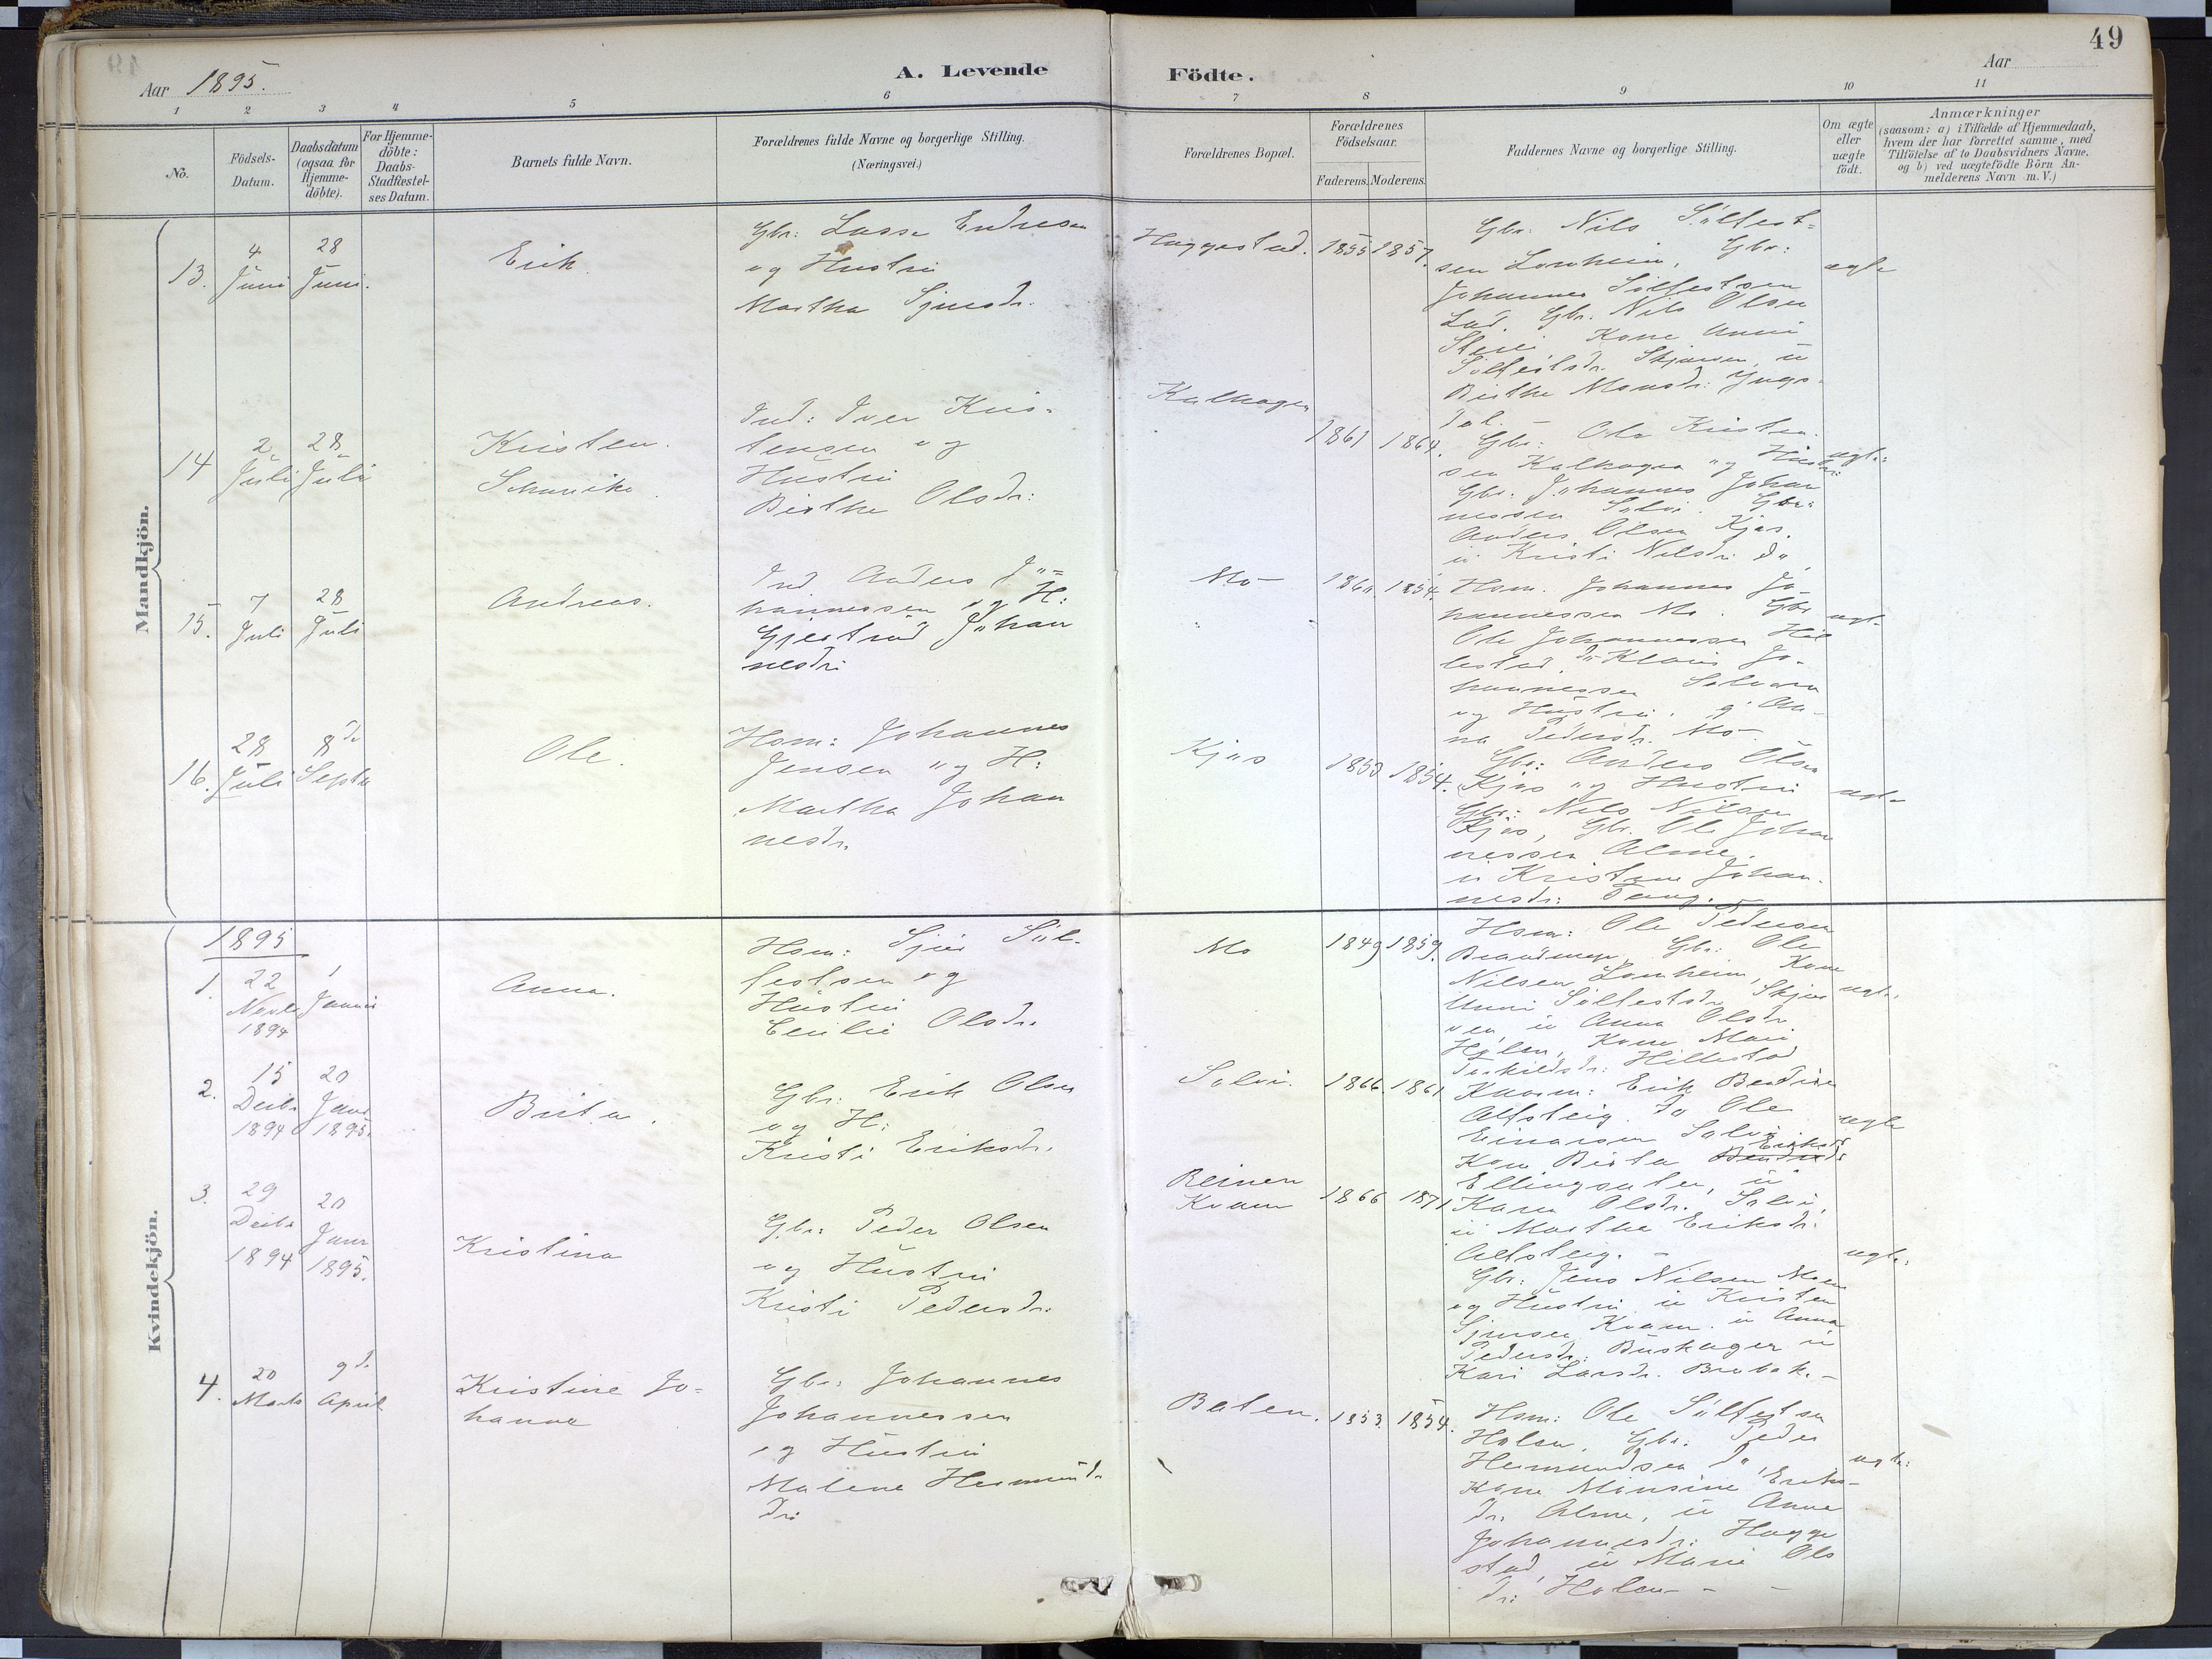 49
Aar 1895.
A. Levende Födte.
Aar
1 2 3 4 5 6 7 8 9 10 11
No.
Födsels-
Datum.
Daabsdatum
(ogsaa for
Hjemme-
döbte).
For Hjemme-
döbte:
Daabs-
Stadfæstel-
ses Datum.
Barnets fulde Navn.
Forældrenes fulde Navne og borgerlige Stilling.
(Næringsvei.)
Forældrenes Bopæl.
Forældrenes
Födselsaar.
Faderens. Moderens.
Faddernes Navne og borgerlige Stilling.
Om ægte
eller
uægte
födt.
Anmærkninger
(saasom: a) i Tilfælde af Hjemmedaab,
hvem der har forrettet samme, med
Tilföielse af to Daabsvidners Navne.
og b) ved uægtefödte Börn An-
melderens Navn m. V.)
Mandkjön.
13.
4
Juni
28
Juni.
Erik
Gbr: Lasse Endresen
og Hustru
Martha Sjursdr.
Haggestad.
1855
1857.
Gbr: Nils Sölfest-
sen Lonheim, Gbr:
Johannes Sölfestsen
Lad. Gbr. Nils Olsen
Kone Anni
Sölfestsdr. Skjerven, u
Birthe Monsdr: Yngs-
dal. –
ægte
14
2
Juli
28
Juli
Kristen
Schanike
Ind: Iver Kris-
tensen og
Hustru
Birthe Olsdr:
Kalhagen
1861
1864.
Gbr: Ola Kristen-
sen Kalhagen og Hustru:
Gbr. Johannes Johan
nessen Solvi. Gbr:
Anders Olsen Kjøs.
u Kristi Nilsdr: do
ægte:
15.
7
Juli
28
Juli
Andreas.
Ind Anders Jo=
hannessen og H:
Gjertrud Johan
nesdr:
Mo
1854.
Hsm. Johannes Jo-
hannessen Mo. Gbr
Ole Johannessen Hil
lestad, do Klaus Jo-
hannessen
og Hustru. g An-
na Pedersdr. Mo
ægte
16.
28
Juli
8de
Septbr
Ole.
Hsm: Johannes
Jensen og H:
Martha Johan
nesdr.
Kjøs
1854.
Gbr: Anders Olsen
Kjøs og Hustru
Gbr: Nils Nilsen
Kjøs, Gbr. Ole Johan
nessen Alme.
u Kristine Johan-
nesdr:
ægte
Kvindekjön.
1895
1.
22
Novbr
1894
1
Januar
Anna.
Hsm: Sjur Söl-
festsen og
Hustru
Cecilie Olsdr.
Mo
1849
1859.
Hsm: Ole Pedersen
Gbr: Ole
Nilsen Lonheim, Kone
Unni Sölfestsdr Skjer
ven, u Anna Olsdr
Holen, Kone Mari
Torkildsdr: Hillestad
ægte.
2.
15
Decbr
1894
20
Janr
1895.
Brita.
Gbr: Erik Olsen
og H:
Kristi Eriksdr.
Solvi.
1866.
1861
Erik
Ofsteig. do Ole
Einarsen Solvi
Kone Birta Eriksdr
Ellingsæter, u
Karen Olsdr. Solvi,
u Martha Eriksdr.
Ofsteig. –
ægte
3.
29
Decbr
1894
20
Janr
1895.
Kristina
Gbr: Peder Olsen
og Hustru
Kristi Pedersdr:
Reinen
Kvam
1866
1871
Gbr: Jens Nilsen Moen
og Hustru u Kristen
Sjursen Kvam. u Anna
Pedersdr: Buskager u
Kari Larsdr.
ægte:
4.
20
Marts
9de
April
Kristine Jo-
hanna
Gbr: Johannes
Johannessen
og Hustru
Malene Hermunds
dr:
Balen.
1853.
1854.
Hsm: Ole Sölfestsen
Holen, Gbr: Peder
Hermundsen do
Kone Mònsine Eriks-
dr. Alme, u Anna
Johannesdr: Hagge
stad, u Marie Ols
dr: Holen –
ægte: